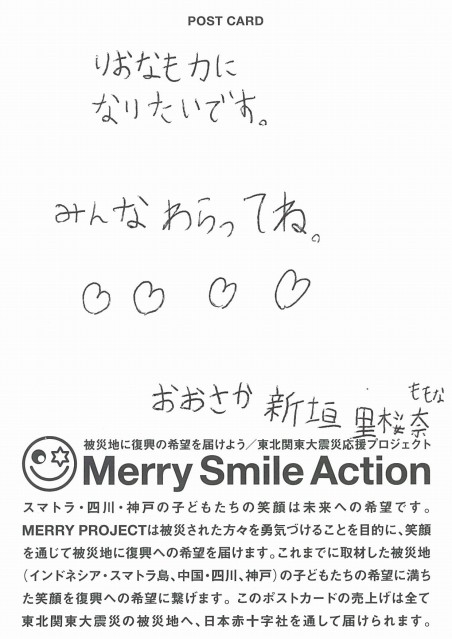 POST CARD
りおなも力に
なりたいです。
みんなわらってね。
おおさか 新垣 里桜奈
ももな
被災地に復興の希望を届けよう／東北関東大震災応援プロジェクト
Merry Smile Action
スマトラ・四川・神戸の子どもたちの笑顔は未来への希望です。
MERRY PROJECTは被災された方々を勇気づけることを目的に、笑顔
を通じて被災地に復興への希望を届けます。これまでに取材した被災地
（インドネシア・スマトラ島、中国・四川、神戸）の子どもたちの希望に満ち
た笑顔を復興への希望に繋げます。このポストカードの売上げは全て
東北関東大震災の被災地へ、日本赤十字社を通して届けられます。